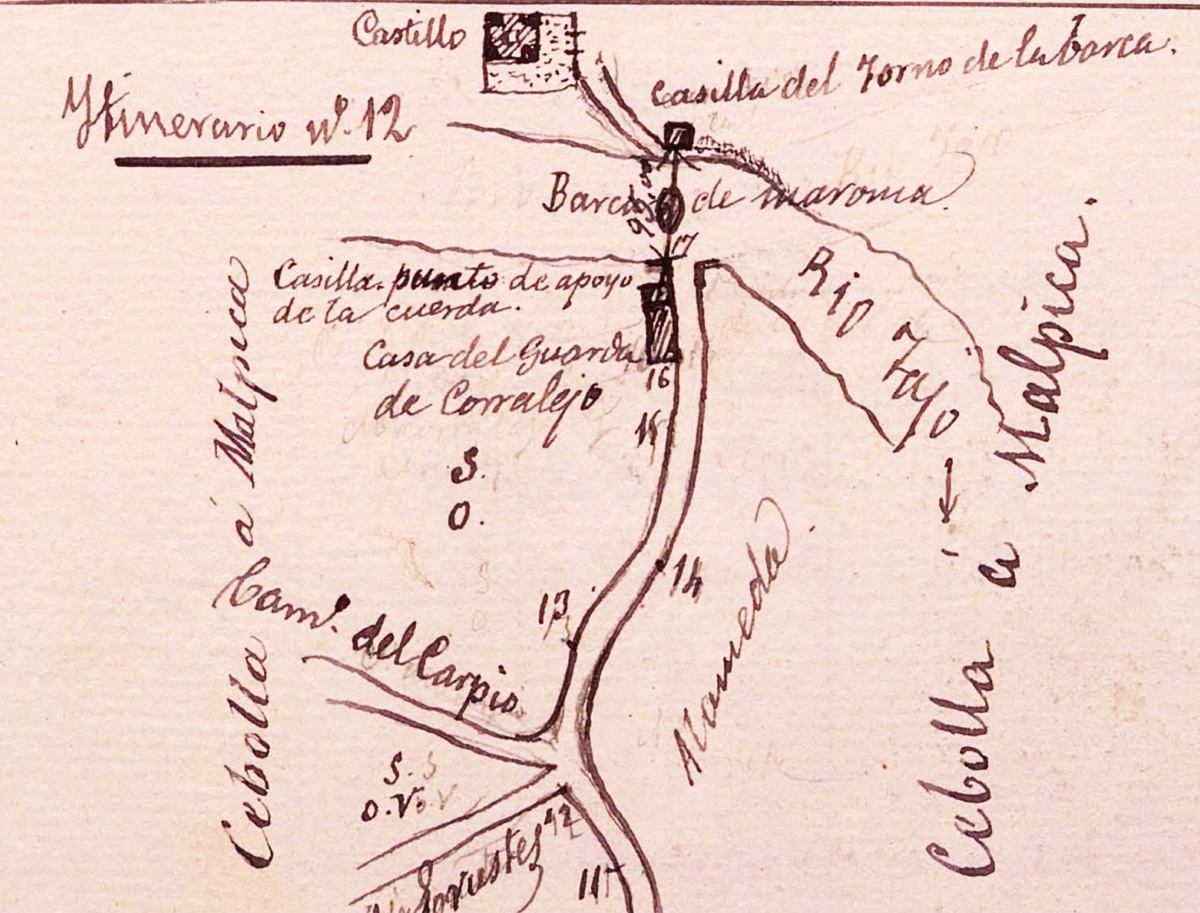 Castillo
Casilla del Torno de la barca.
Itinerario nº. 12
Barca de maroma
99,00
17
Casilla punto de apoyo
de la cuerda.
Casa del Guarda
de Corralejo
Rio
Tajo
16
15
S.
O.
14
13
Cam.º del Carpio
Alameda
Cebolla á Malpica
Cebolla á Malpica.
S.
O. V.
12
11